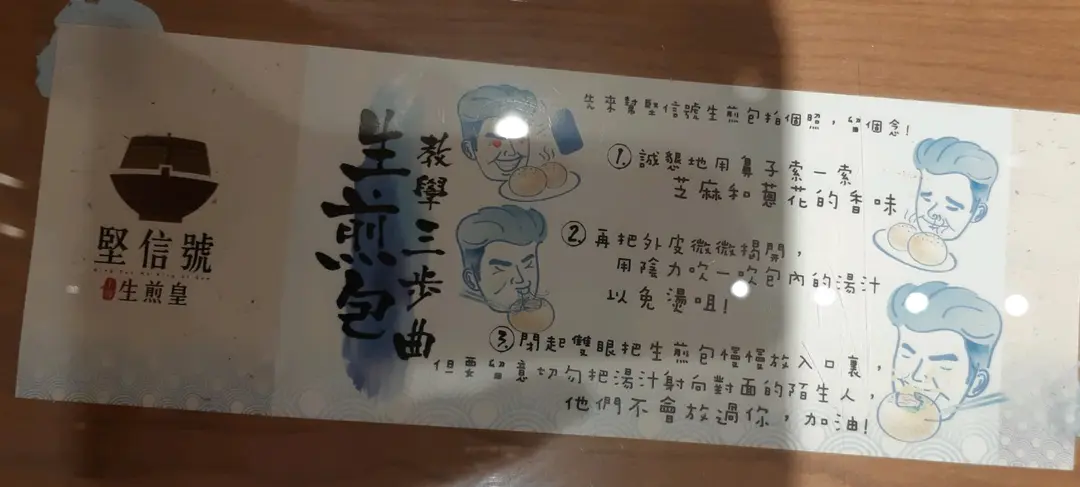 堅信號
生煎皇
生煎包
教學三步曲
先來幫堅信號生煎包拍個照，留個念！
1. 誠懇地用鼻子索一索
芝麻和蔥花的香味
2. 再把外皮微微揭開，
用陰力吹一吹包內的湯汁
以免燙咀！
3. 閉起雙眼把生煎包慢慢放入口裏，
但要留意切勿把湯汁射向對面的陌生人，
他們不會放過你，加油！